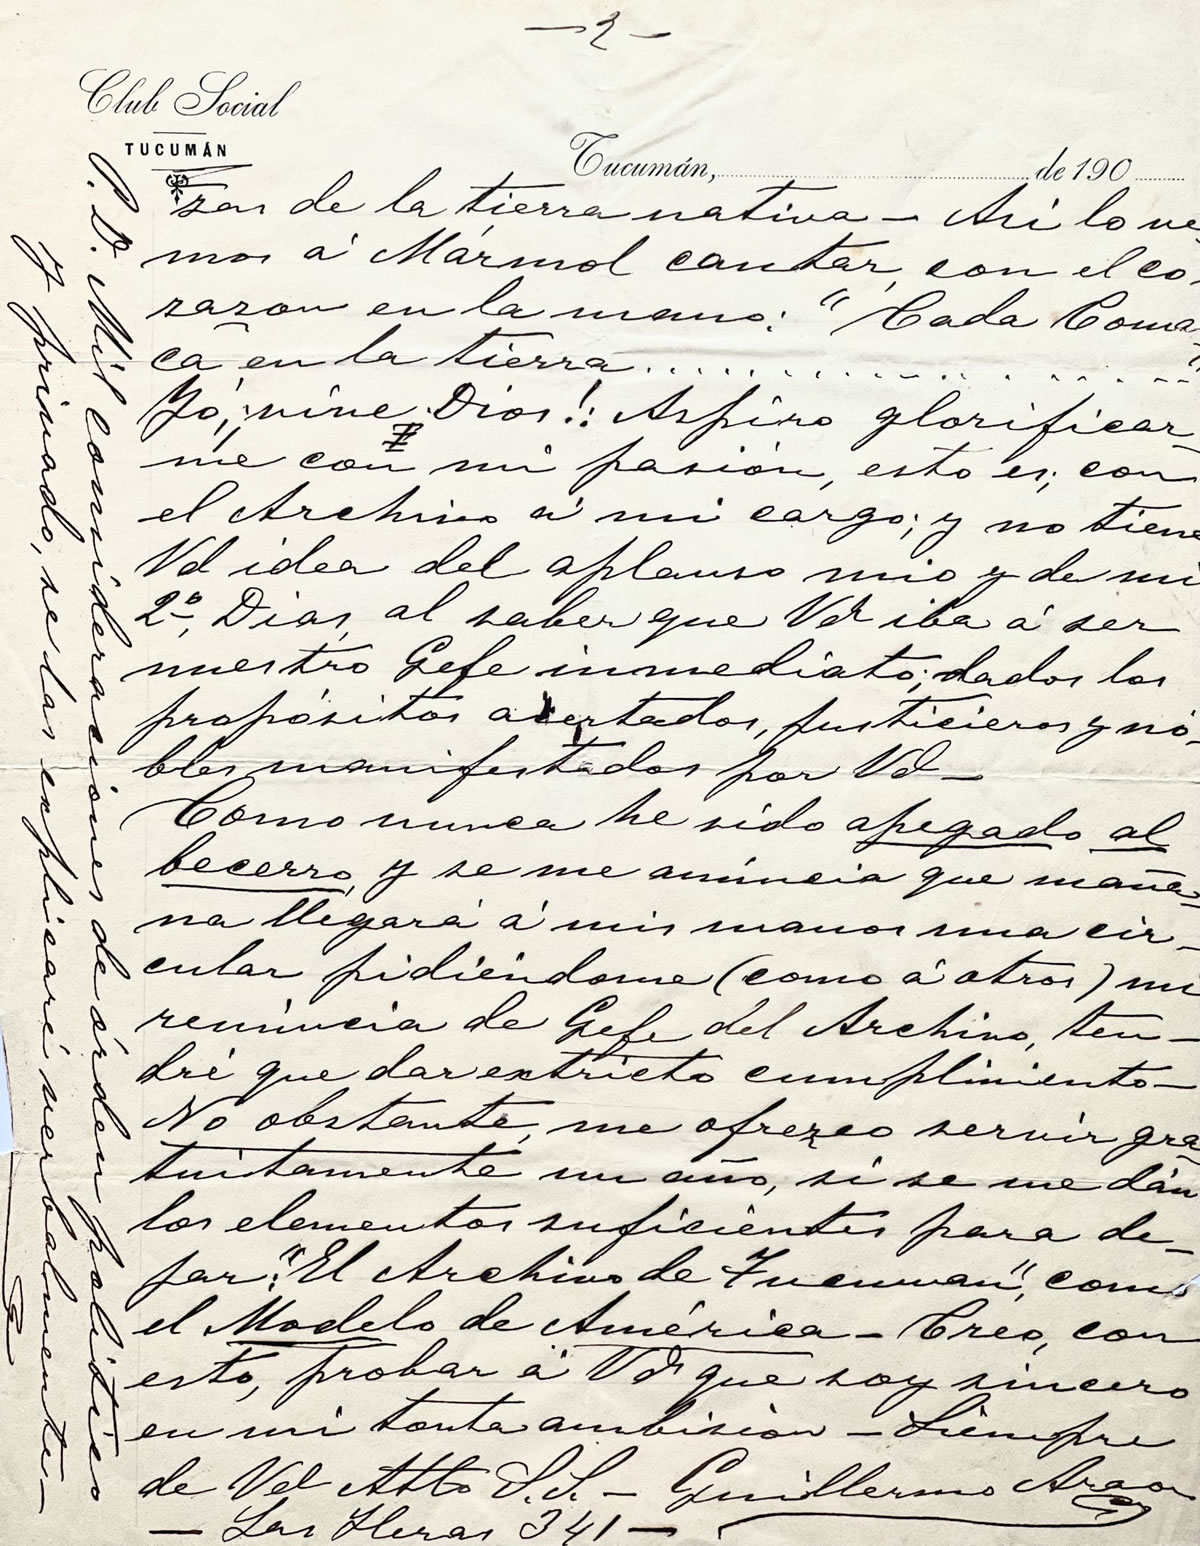 —2—
Club Social
TUCUMÁN
Tucumán, de 190
zas de la tierra nativa — Así lo ve-
mos á Mármol cantar, con el co-
razon en la mano: "Cada Comar-
ca en la tierra.............."
Yó, ¡vive Dios!: Aspiro glorificar-
me con mi pasión, esto es; con
el Archivo á mi cargo; y no tiene
Vd idea del aplauso mio y de mi
2º, Dias, al saber que Vd iba á ser
nuestro Gefe inmediato; dados los
propósitos acertados, justicieros y no-
bles manifestados por Vd —
Como nunca he sido apegado al
becerro, y se me anúncia que maña-
na llegará á mis manos una cir-
cular pidiéndome (como á otros) mi
renúncia de Gefe del Archivo, ten-
dré que dar extricto cumplimiento —
No obstante, me ofrezco servir gra-
tuitamente un año, si se me dán
los elementos suficientes para de-
jar: "El Archivo de Tucuman", como
el Modelo de América — Creo, con
esto, probar á Vd que soy sincero
en mi tonta ambision — Siempre
de Vd Atto S.S. — Guillermo Araoz
— Las Heras 341 —
P.D. Mil consideraciones de órden político
y privado, se las explicaré verbalmente —